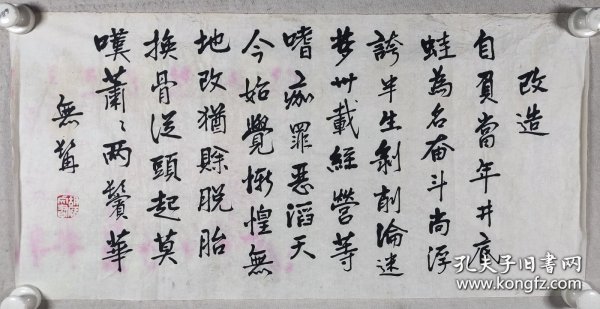 改造
自負當年井底
蛙為名奮斗尚浮
誇半生剝削淪迷
夢卅載經營等
嗜痂罪惡滔天
今始覺慚惶無
地改猶賒脫胎
換骨從頭起莫
嘆蕭〻兩鬢華
無
孔夫子旧书网
www.kongfz.com